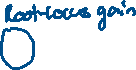 Root-locus gain